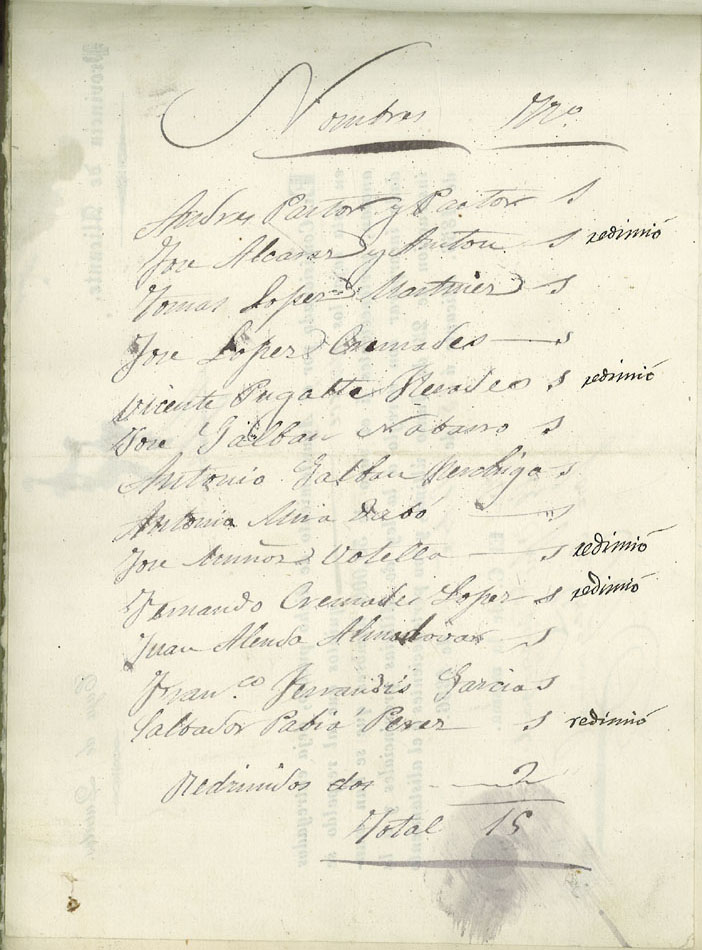 Nombres No
Andres Pastor y Pastor 1
Jose Alcaraz y Anton 1 redimió
Tomas Lopez Martinez 1
Jose Lopez Cremades 1
Vicente Pugalte 1 redimió
Jose Galban Nabarro 1
Antonio Galban 1
Antonio Mira Dabó 1
Jose Muñoz Botella 1 redimió
Fernando Cremades Lopez 1 redimió
Juan Alenda Almodovar 1
Franco Ferrandis Garcia 1
Salvador Pabia Perez 1 redimió
Redimidos dos 2
Total 15